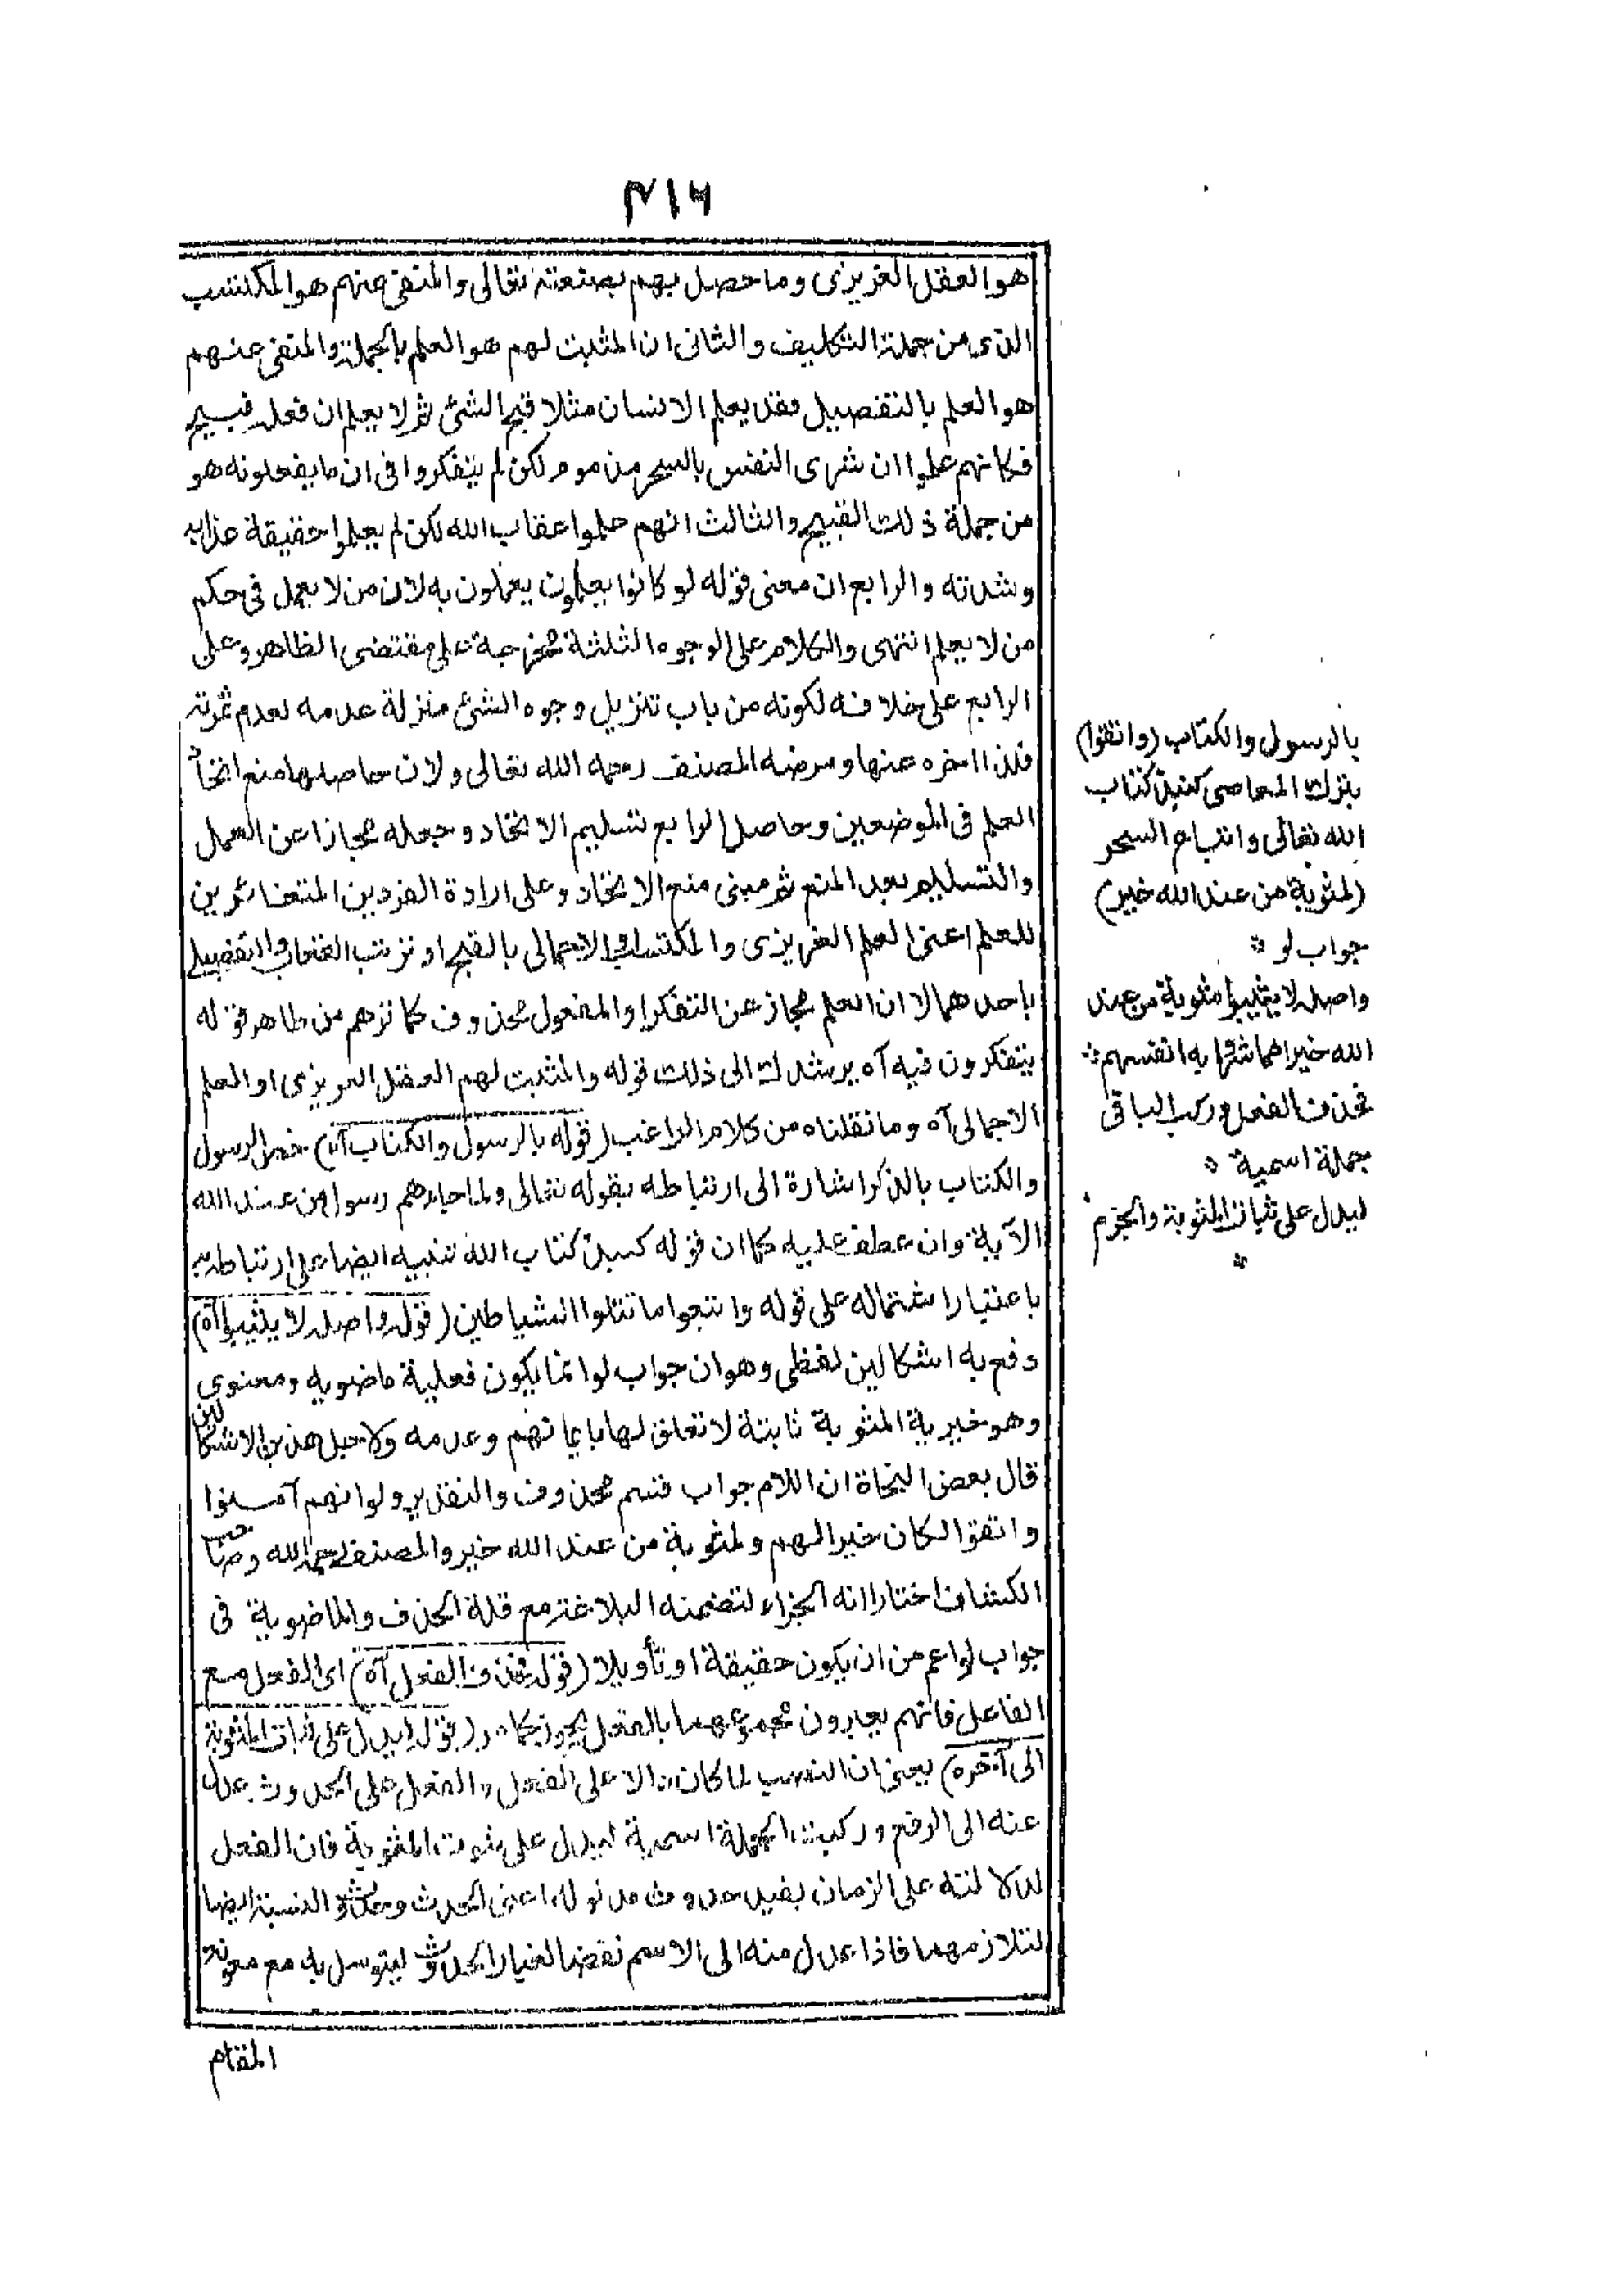 ٤١٦
هو العقل الغريزى وما حصل بهم بصنعته تعالى والمنفى عنهم هو المكتسب
الذى من جملة التكليف والثانى ان المثبت لهم هو العلم بالجملة والمنفى عنهم
هو العلم بالتفصيل فقد يعلم الانسان مثلا قبح الشئ ثم لا يعلم ان فعله قبيح
فكانهم علموا ان شرى النفس بالسحر مذموم لكن لم يتفكروا فى ان ما يفعلونه هو
من جملة ذلك القبيح والثالث انهم علموا عقاب الله لكن لم يعلموا حقيقة عذابه
وشدته والرابع ان معنى قوله لو كانوا يعلمون يعملون به لان من لا يعمل فى حكم
من لا يعلم انتهى والكلام على الوجوه الثلثة مخرجة على مقتضى الظاهر وعلى
الرابع على خلافه لكونه من باب تنزيل وجوه الشئ منزلة عدمه لعدم ثمرته
فلذا اخره عنها ومرضه المصنف رحمه الله تعالى ولان حاصلها منع اتحاد
العلم فى الموضعين وحاصل الرابع تسليم الاتحاد وجعله مجازا عن العمل
والتسليم بعد المنع ثم مبنى منع الاتحاد وعلى ارادة الفردين المتغائرين
للعلم اعنى العلم الغريزى والمكتسب او الاجمالى بالقبح او ترتب العقاب والتفصيلى
باحدهما لا ان العلم مجاز عن التفكر او المفعول محذوف كما توهم من ظاهر قوله
يتفكرون فيه آه يرشدك الى ذلك قوله والمثبت لهم العقل الغريزى او العلم
الاجمالى آه وما نقلناه من كلام الراغب (قوله بالرسول والكتاب آه) خص الرسول
والكتاب بالذكر اشارة الى ارتباطه بقوله تعالى ولما جاءهم رسول من عند الله
الآية وان عطف عليه كما ان قوله كنبذ كتاب الله تنبيه ايضا على ارتباطه به
باعتبار اشتماله على قوله واتبعوا ما تتلوا الشياطين (قوله واصله لا يثيبوا آه)
دفع به اشكالين لفظى وهو ان جواب لو انما يكون فعلية ماضوية ومعنوى
وهو خيرية المثوبة ثابتة لا تعلق لها بايمانهم وعدمه ولاجل هذين الاشكالين
قال بعض النحاة ان اللام جواب قسم محذوف والتقدير ولو انهم آمنوا
واتقوا لكان خيرا لهم ولمثوبة من عند الله خير والمصنف رحمه الله وصاحب
الكشاف اختارا انه الجزاء لتضمنه البلاغة مع قلة الحذف والماضوية فى
جواب لو اعم من ان يكون حقيقة او تأويلا (قوله فحذف الفعل آه) اى الفعل مع
الفاعل فانهم يعبرون مجموعهما بالفعل تجوزا (قوله ليدل على ثبات المثوبة
الى آخره) يعنى ان النصب لما كان دالا على الفعل والفعل على الحدوث عدل
عنه الى الرفع وركبت الجملة اسمية ليدل على ثبوت المثوبة فان الفعل
لدلالته على الزمان يفيد حدوث مدلوله اعنى الحدث وحدوث النسبة ايضا
لتلازمهما فاذا عدل منه الى الاسم نقضا لغبار الحدوث ليتوسل به مع معونة
المقام
بالرسول والكتاب (واتقوا)
بترك المعاصى كنبذ كتاب
الله تعالى واتباع السحر
(لمثوبة من عند الله خير)
جواب لو *
واصله لا يثيبوا مثوبة من عند
الله خيرا مما شروا به انفسهم *
فحذف الفعل وركب الباقى
جملة اسمية *
ليدل على ثبات المثوبة والجزم
*